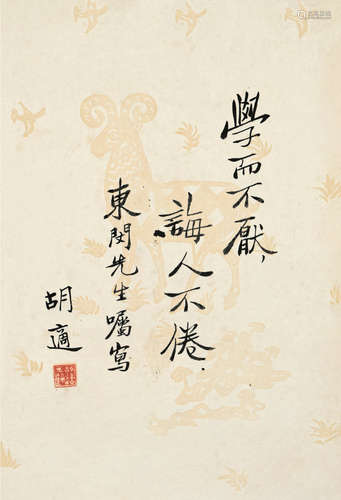 學而不厭，
誨人不倦．
東閔先生囑寫
胡適